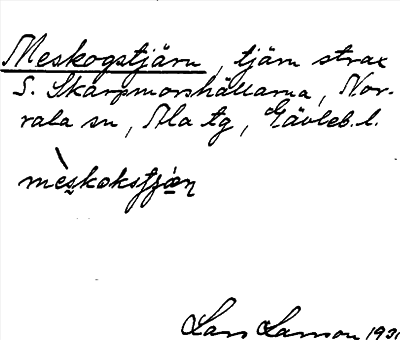 Meskogstjärn, tjärn strax
S. Skarpmorshällarna, Nor-
rala sn, Ala tg, Gävleb. l.
mèskokstjæ̣ṇ
Lars Larsson 1931